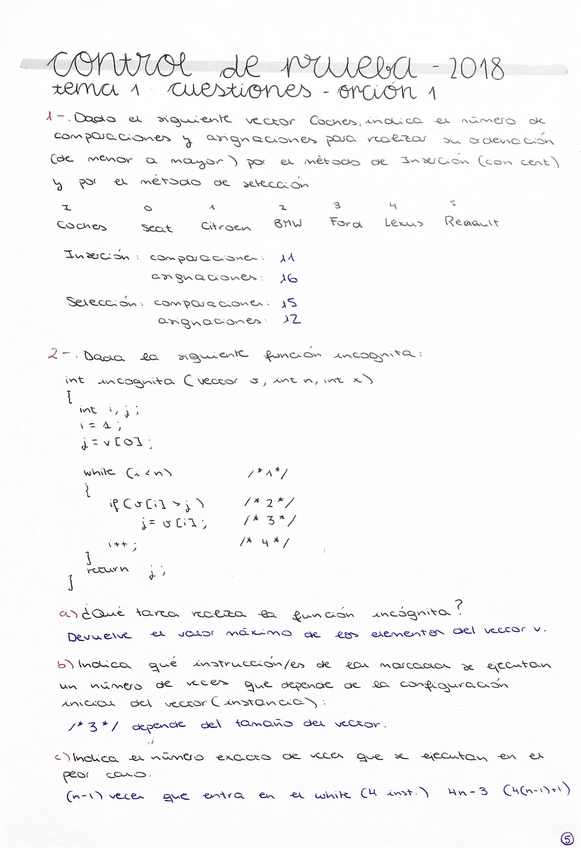 control de prueba - 2018
tema 1 cuestiones - opción 1
1-. Dado el siguiente vector Coches, indica el número de
comparaciones y asignaciones para realizar su ordenación
(de menor a mayor) por el método de Inserción (con cent)
y por el método de selección
I 0 1 2 3 4 5
Coches Seat Citroen BMW Ford Lexus Renault
Inserción: comparaciones: 11
asignaciones: 16
Selección: comparaciones: 15
asignaciones: 12
2-. Dada la siguiente función incognita:
int incognita (vector v, int n, int x)
{
int i, j;
i = 1;
j = v[0];
while (i < n) /*1*/
{
if (v[i] > j) /*2*/
j = v[i]; /*3*/
i++; /*4*/
}
return j;
}
a) ¿Qué tarea realiza la función incógnita?
Devuelve el valor máximo de los elementos del vector v.
b) Indica qué instrucción/es de las marcadas se ejecutan
un número de veces que depende de la configuración
inicial del vector (instancia):
/*3*/ depende del tamaño del vector.
c) Indica el número exacto de veces que se ejecutan en el
peor caso.
(n-1) veces que entra en el while (4 inst.) 4n-3 (4(n-1)+1)
5